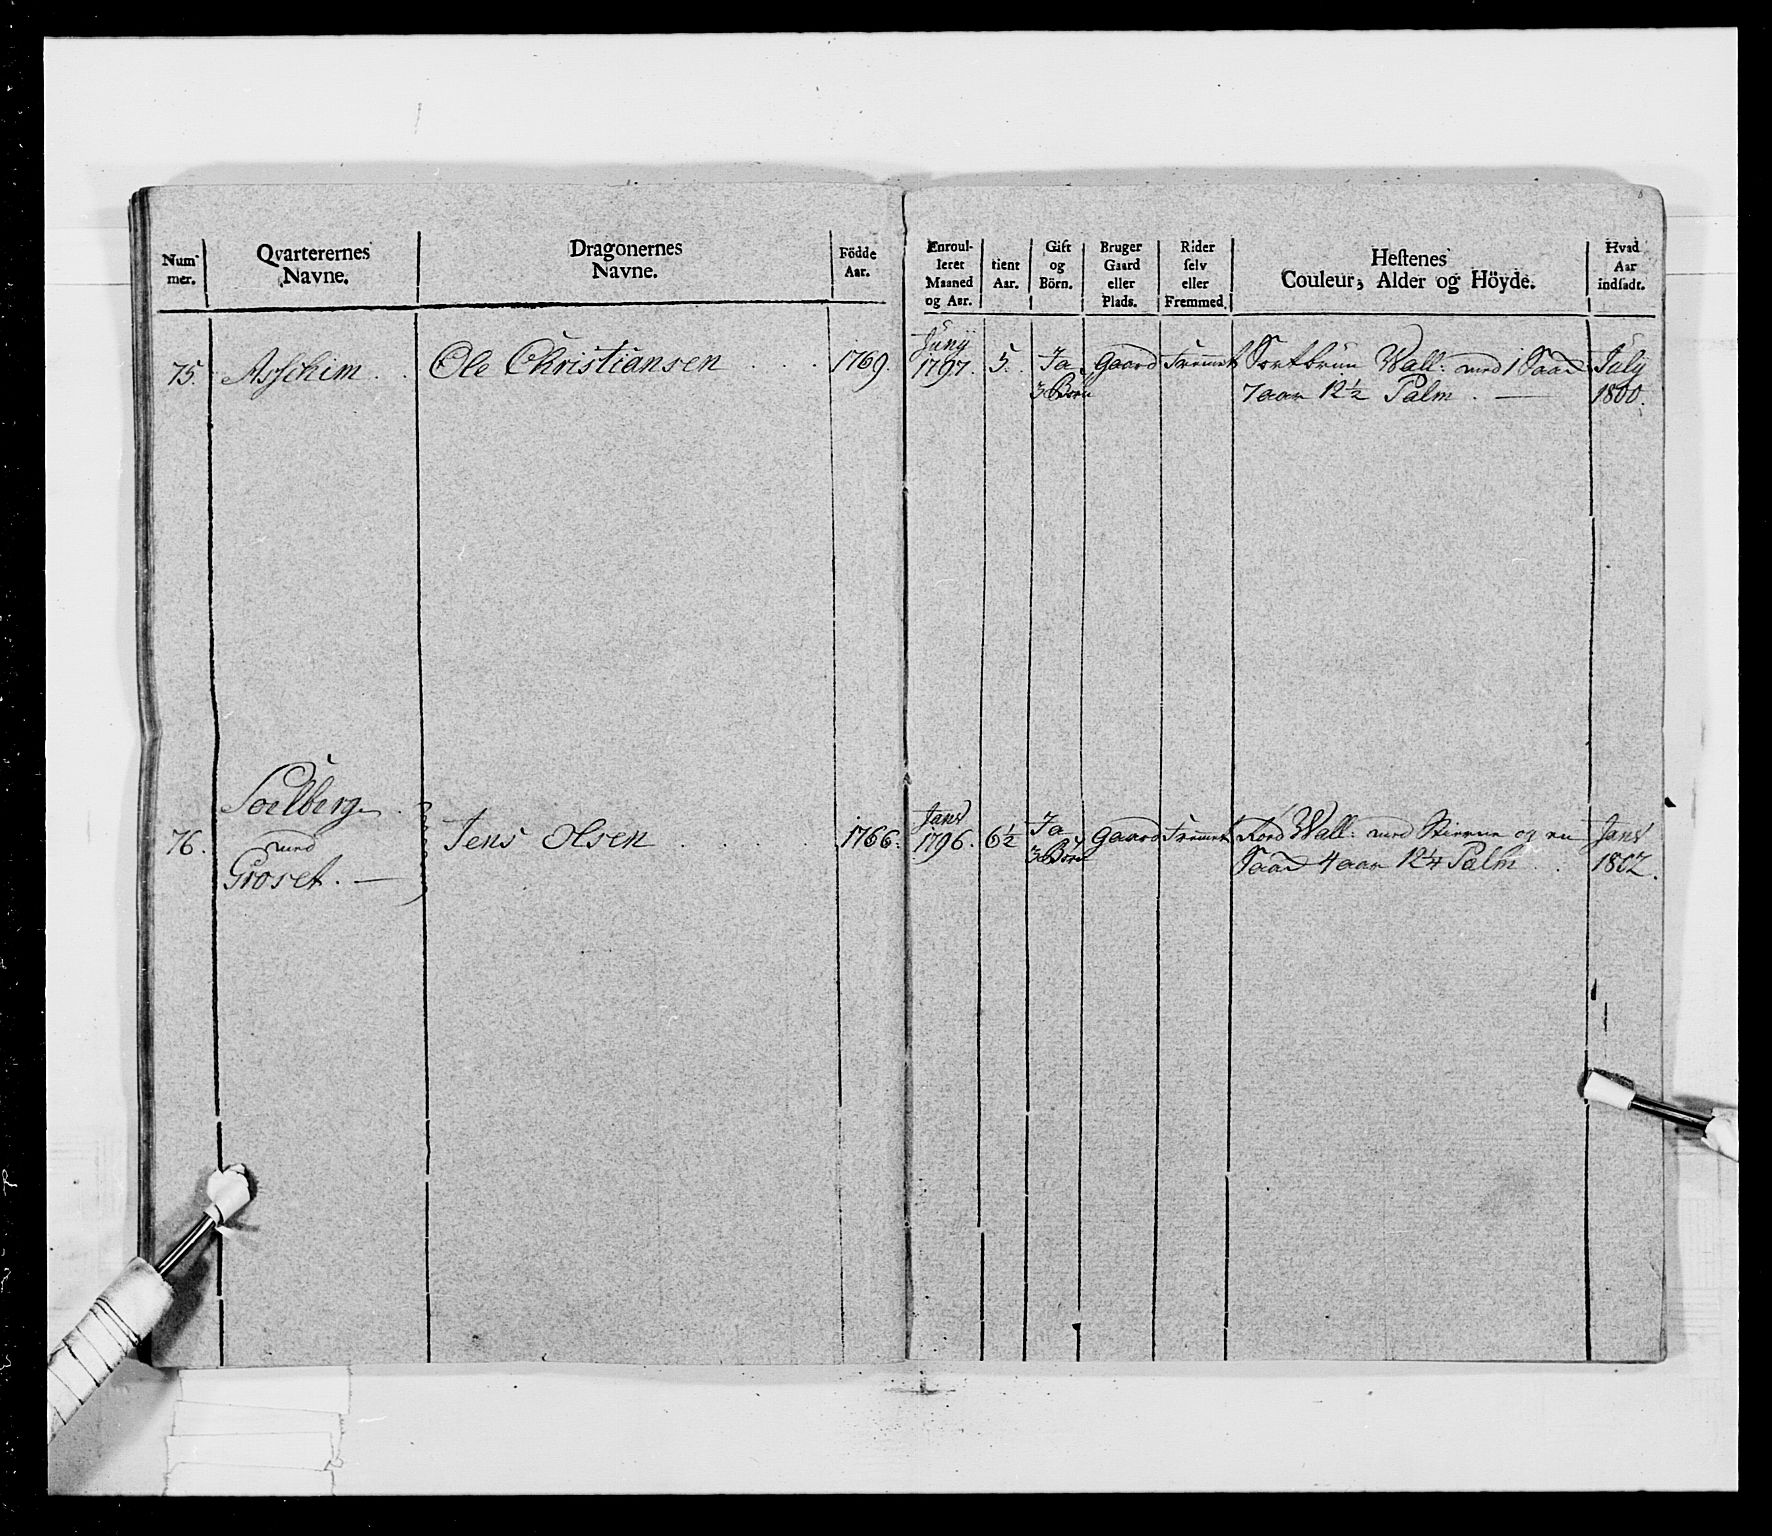 Num- Qvarterernes Dragonernes Födde Enroul- tient Gift Bruger Rider Heftenes Hvad
mer. Navne. Navne. Aar. leret Aar. og Gaard selv Couleur, Alder og Höyde. Aar
Maaned Börn. eller eller indsadt.
og Aar. Plads. Fremmed.
Juny
75. Asschim . . Ole Christiansen . . . 1769. 1797. 5. Ja Gaard Fremmet Sortbrun Wall: med 1 July
3 Börn 7 aar 12½ Palm . — 1800.
Soelberg Janv
76. med Jens Olsen . . . . . 1766. 1796. 6½ Ja Gaard Fremmet Röd Wall: med Stierne og en Janv
Groset. — 3 Börn 4 aar 12¼ Palm . . 1802.